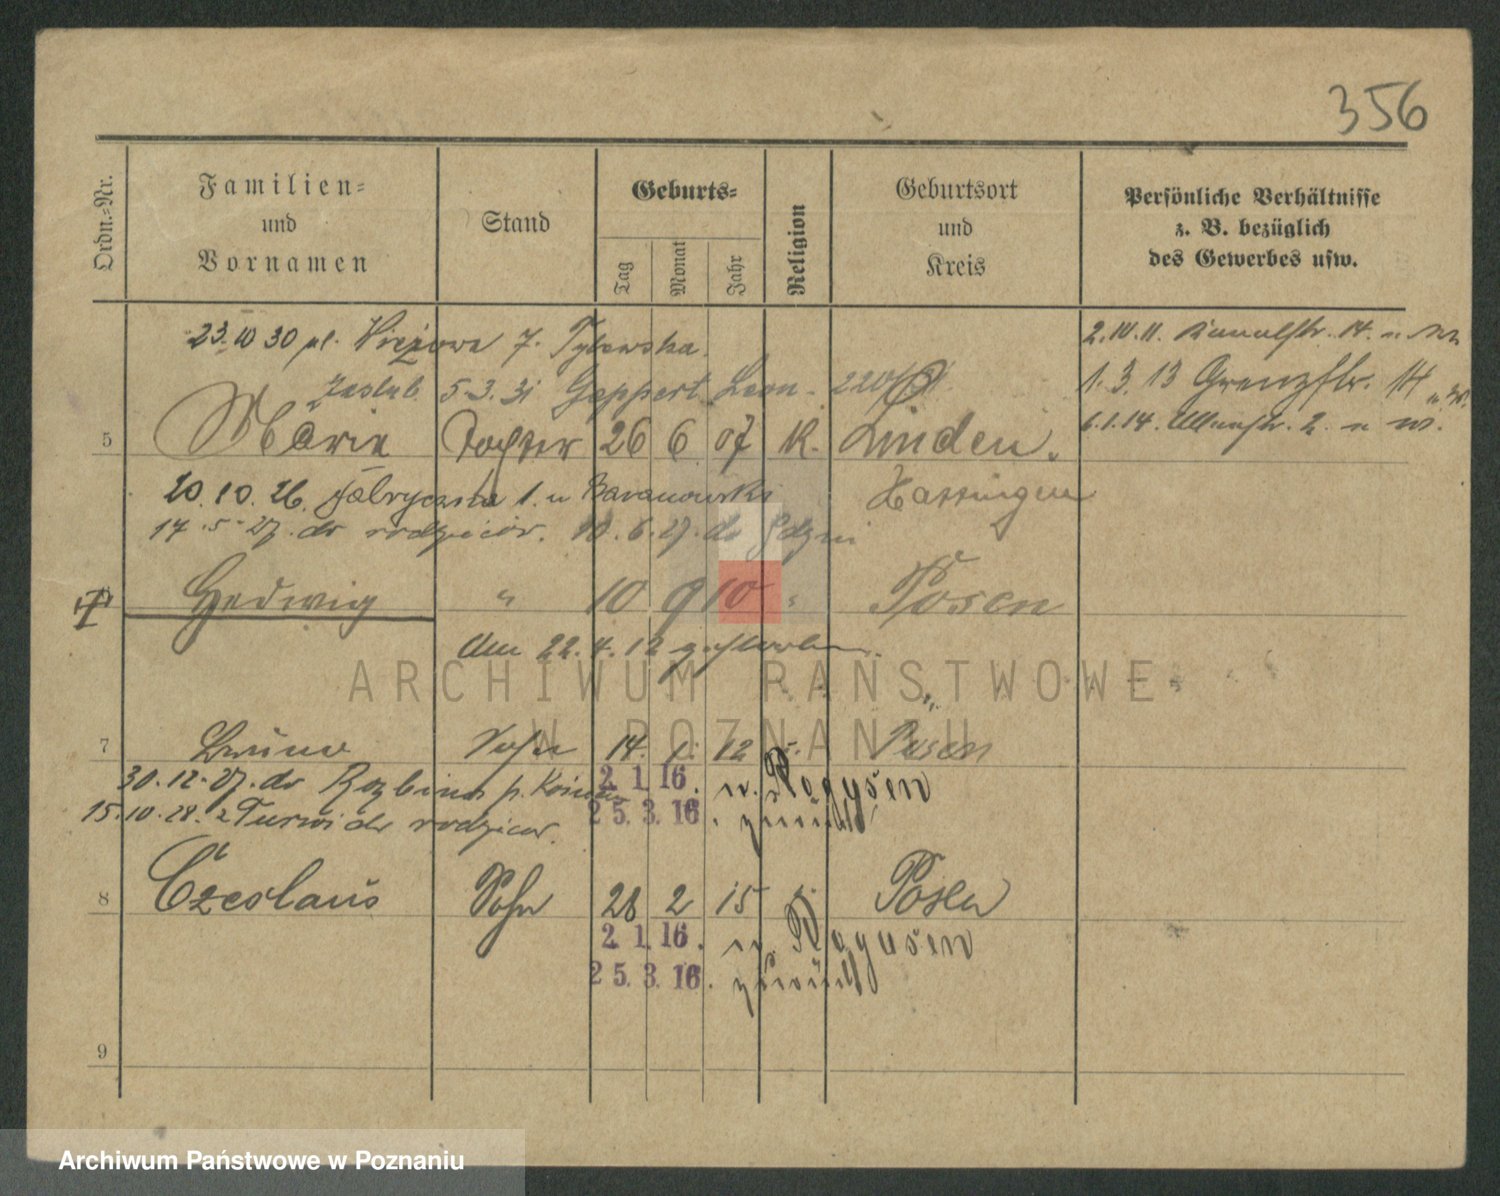 356
Ordn.-Nr.
Familien-
und
Vornamen
Stand
Geburts-
Tag
Monat
Jahr
Religion
Geburtsort
und
Kreis
Persönliche Verhältnisse
z. B. bezüglich
des Gewerbes usw.
23.10 30 pl. 7. Tylewska.
2.10.11. Kanalstr. 14.
5.3.31 Geppert Leon
1.3.13 Grenzstr. 14
6.1.14. 2
5 Marie Tochter 26 6 07 K. Linden.
20.10.26. Fabryczna 1. u Baranowski
Hattingen
14.5.27. do rodziców. 10.6.27. do Gdyni
Hedwig " 10 9 10 " Posen
Am 22.4.12 gestorben.
ARCHIWUM PAŃSTWOWE
W POZNANIU
7 Bruno Sohn 14. 1. 12 Posen
30.12.27. do p.
2. 1. 16. n. Rogasen
15.10.28. z Turwi do rodziców.
25. 3. 16. zurück
8 Czeslaus Sohn 28 2 15 Posen
2. 1. 16. n. Rogasen
25. 3. 16. zurück
9
Archiwum Państwowe w Poznaniu